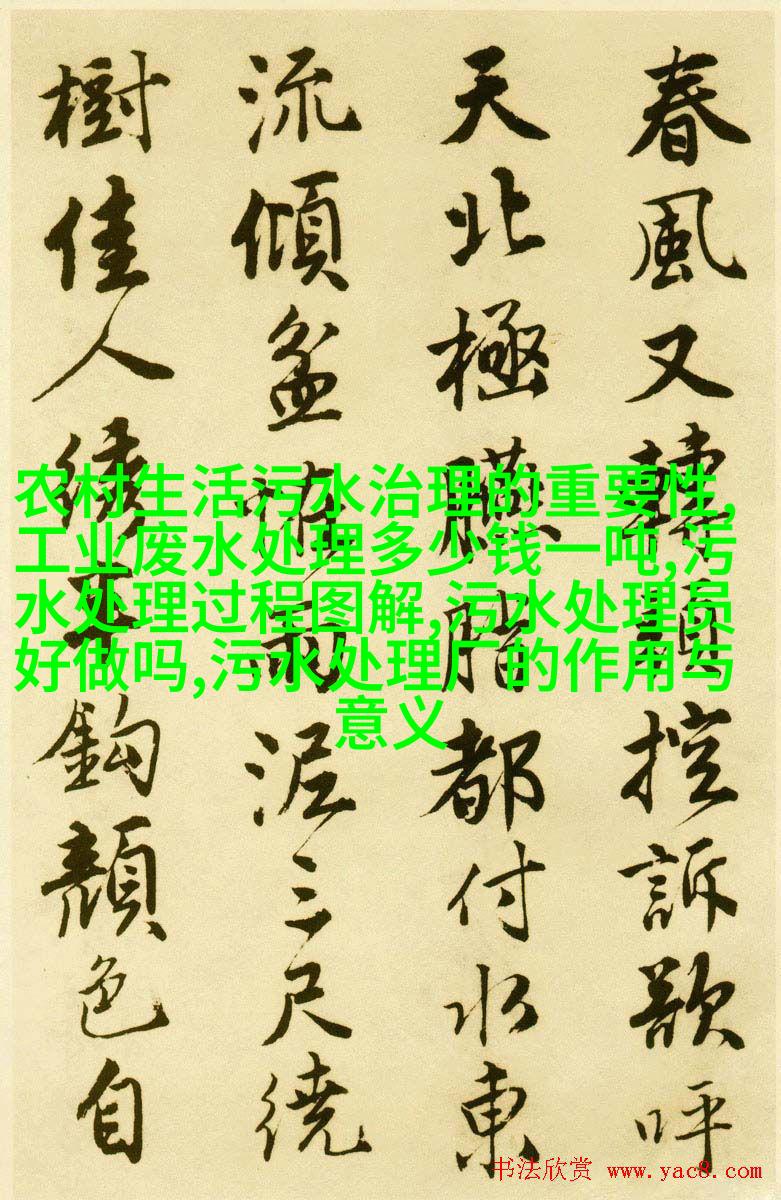 春風又控訴呼
天北極臙脂都付水東
流傾盆雨泥三尺繞
樹佳人鉤顏色自
农村生活污水治理的重要性,
工业废水处理多少钱一吨,污
水处理过程图解,污水处理员
好做吗,污水处理厂的作用与
意义
书法欣赏 www.yac8.com